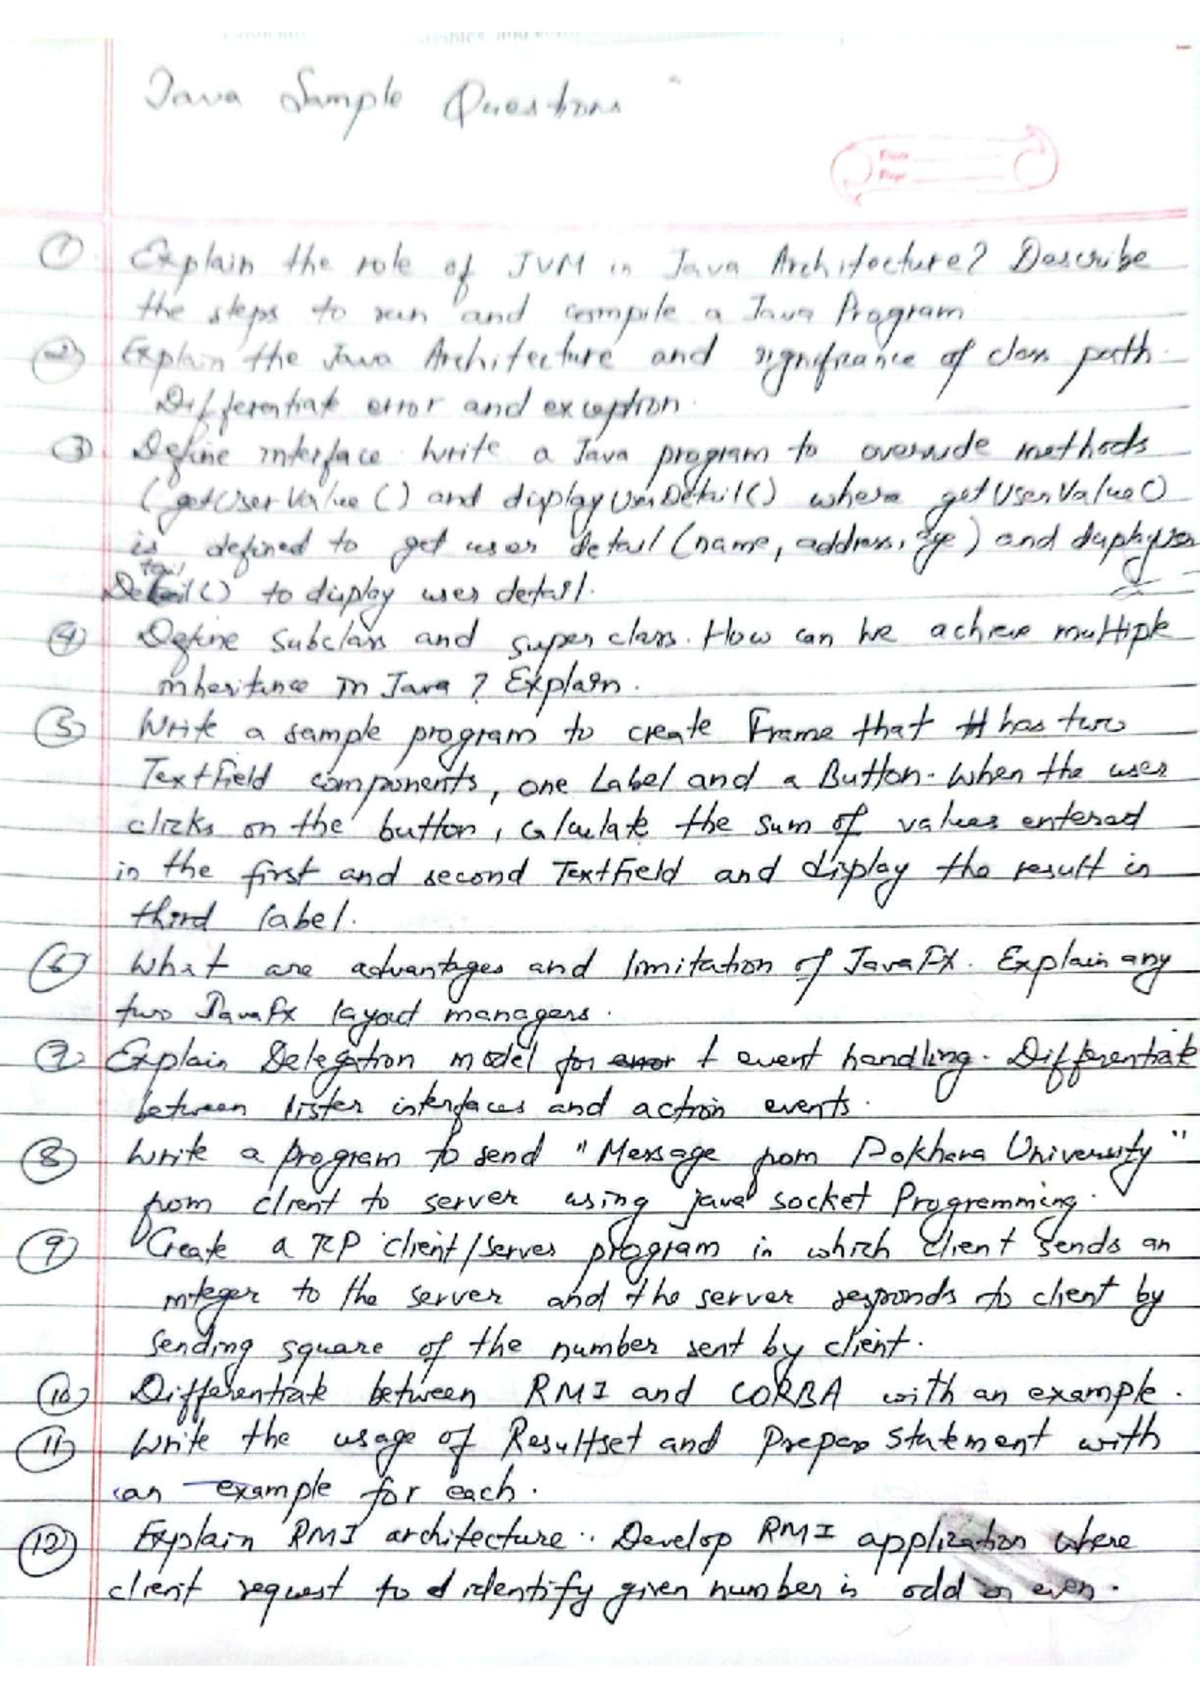 Java Sample Questions
① Explain the role of JVM in Java Architecture? Describe
the steps to run and compile a Java Program
② Explain the Java Architecture and significance of class path.
Differentiate error and exception.
③ Define interface. Write a Java program to override methods
(getUserValue() and displayUserDetail() where getUserValue()
is defined to get user detail (name, address, age) and displayUser
Detail() to display user detail.
④ Define Subclass and super class. How can we achieve multiple
inheritance in Java? Explain.
⑤ Write a sample program to create Frame that has two
TextField components, one Label and a Button. When the user
clicks on the button, calculate the sum of values entered
in the first and second TextField and display the result in
third label.
⑥ What are advantages and limitation of JavaFX. Explain any
two JavaFx layout managers.
⑦ Explain Delegation model for event handling. Differentiate
between lister interfaces and action events.
⑧ Write a program to send "Message from Pokhara University"
from client to server using java socket Programming.
⑨ Create a TCP client/server program in which client sends an
integer to the server and the server responds to client by
sending square of the number sent by client.
⑩ Differentiate between RMI and CORBA with an example.
⑪ Write the usage of Resultset and Prepare Statement with
an example for each.
⑫ Explain RMI architecture. Develop RMI application where
client request to identify given number is odd or even.